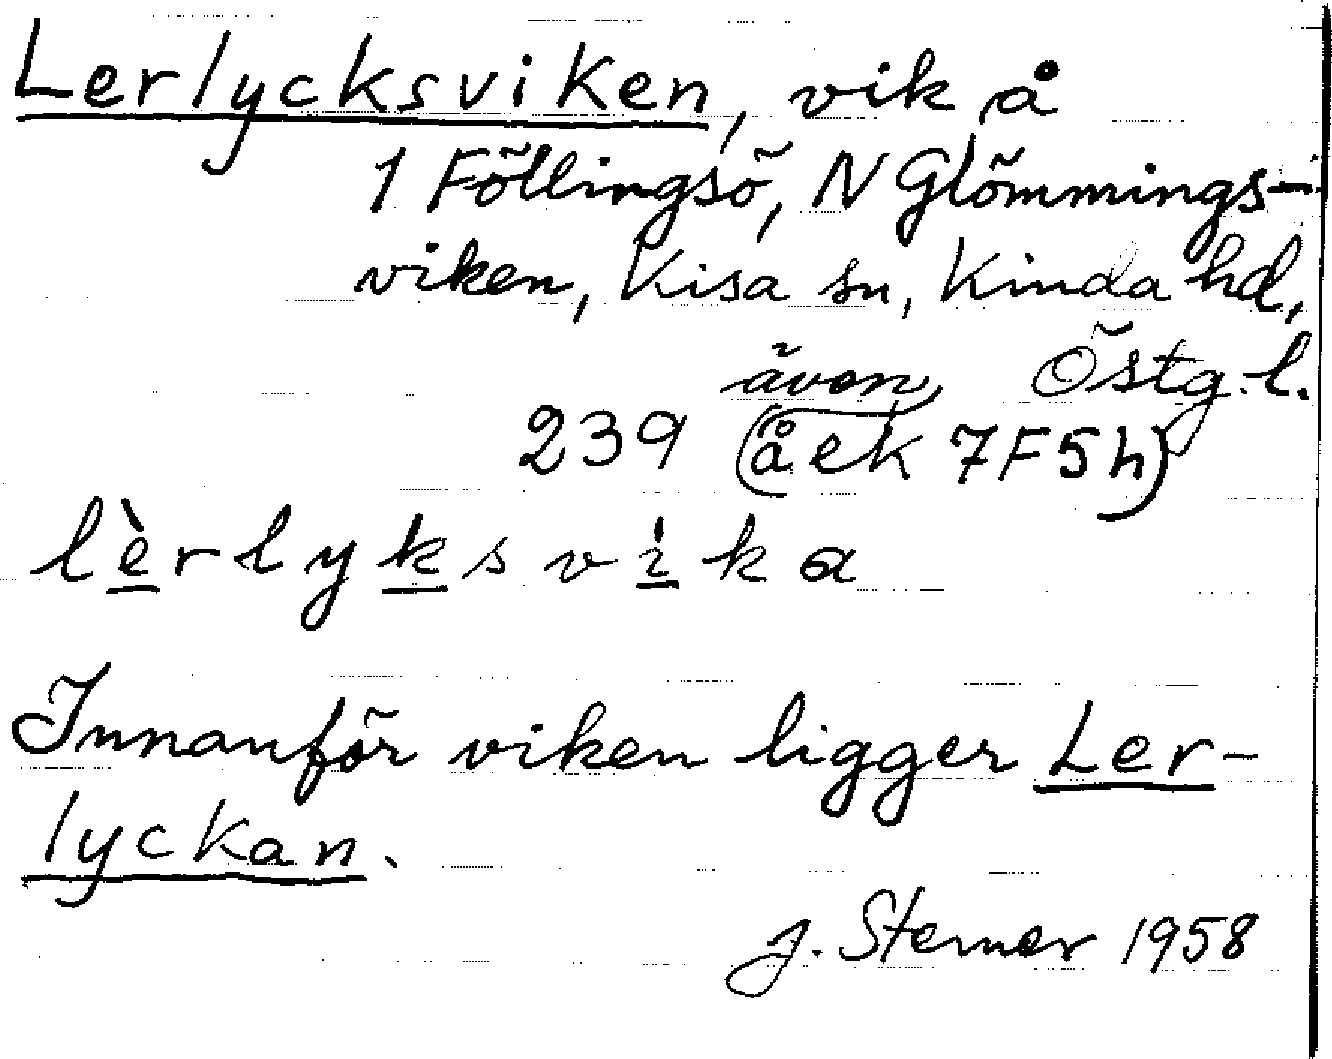 Lerlycksviken, vik å
1 Föllingsö, N Glömmings-
viken, Kisa sn, Kinda hd,
även Östg. l.
239 (å ek 7F5h)
lèrlyksvika
Innanför viken ligger Ler-
lyckan.
J. Sterner 1958